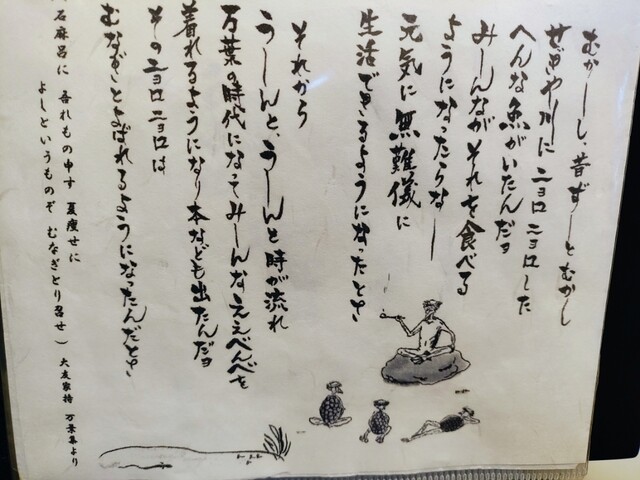 むかーし、昔ずーとむかし
せぎや川にニョロニョロした
へんな魚がいたんだョ
みーんながそれを食べる
ようになったらなー
元気に無難儀に
生活できるようになったとさ
それから
うーんと、うーんと時が流れ
万葉の時代になってみーんなええべべを
着れるようになり本なども出たんだョ
そのニョロニョロは
むなぎとよばれるようになったんだとさ
石麻呂に 吾れもの申す 夏痩せに
よしというものぞ むなぎとり召せ) 大友家持 万葉集より